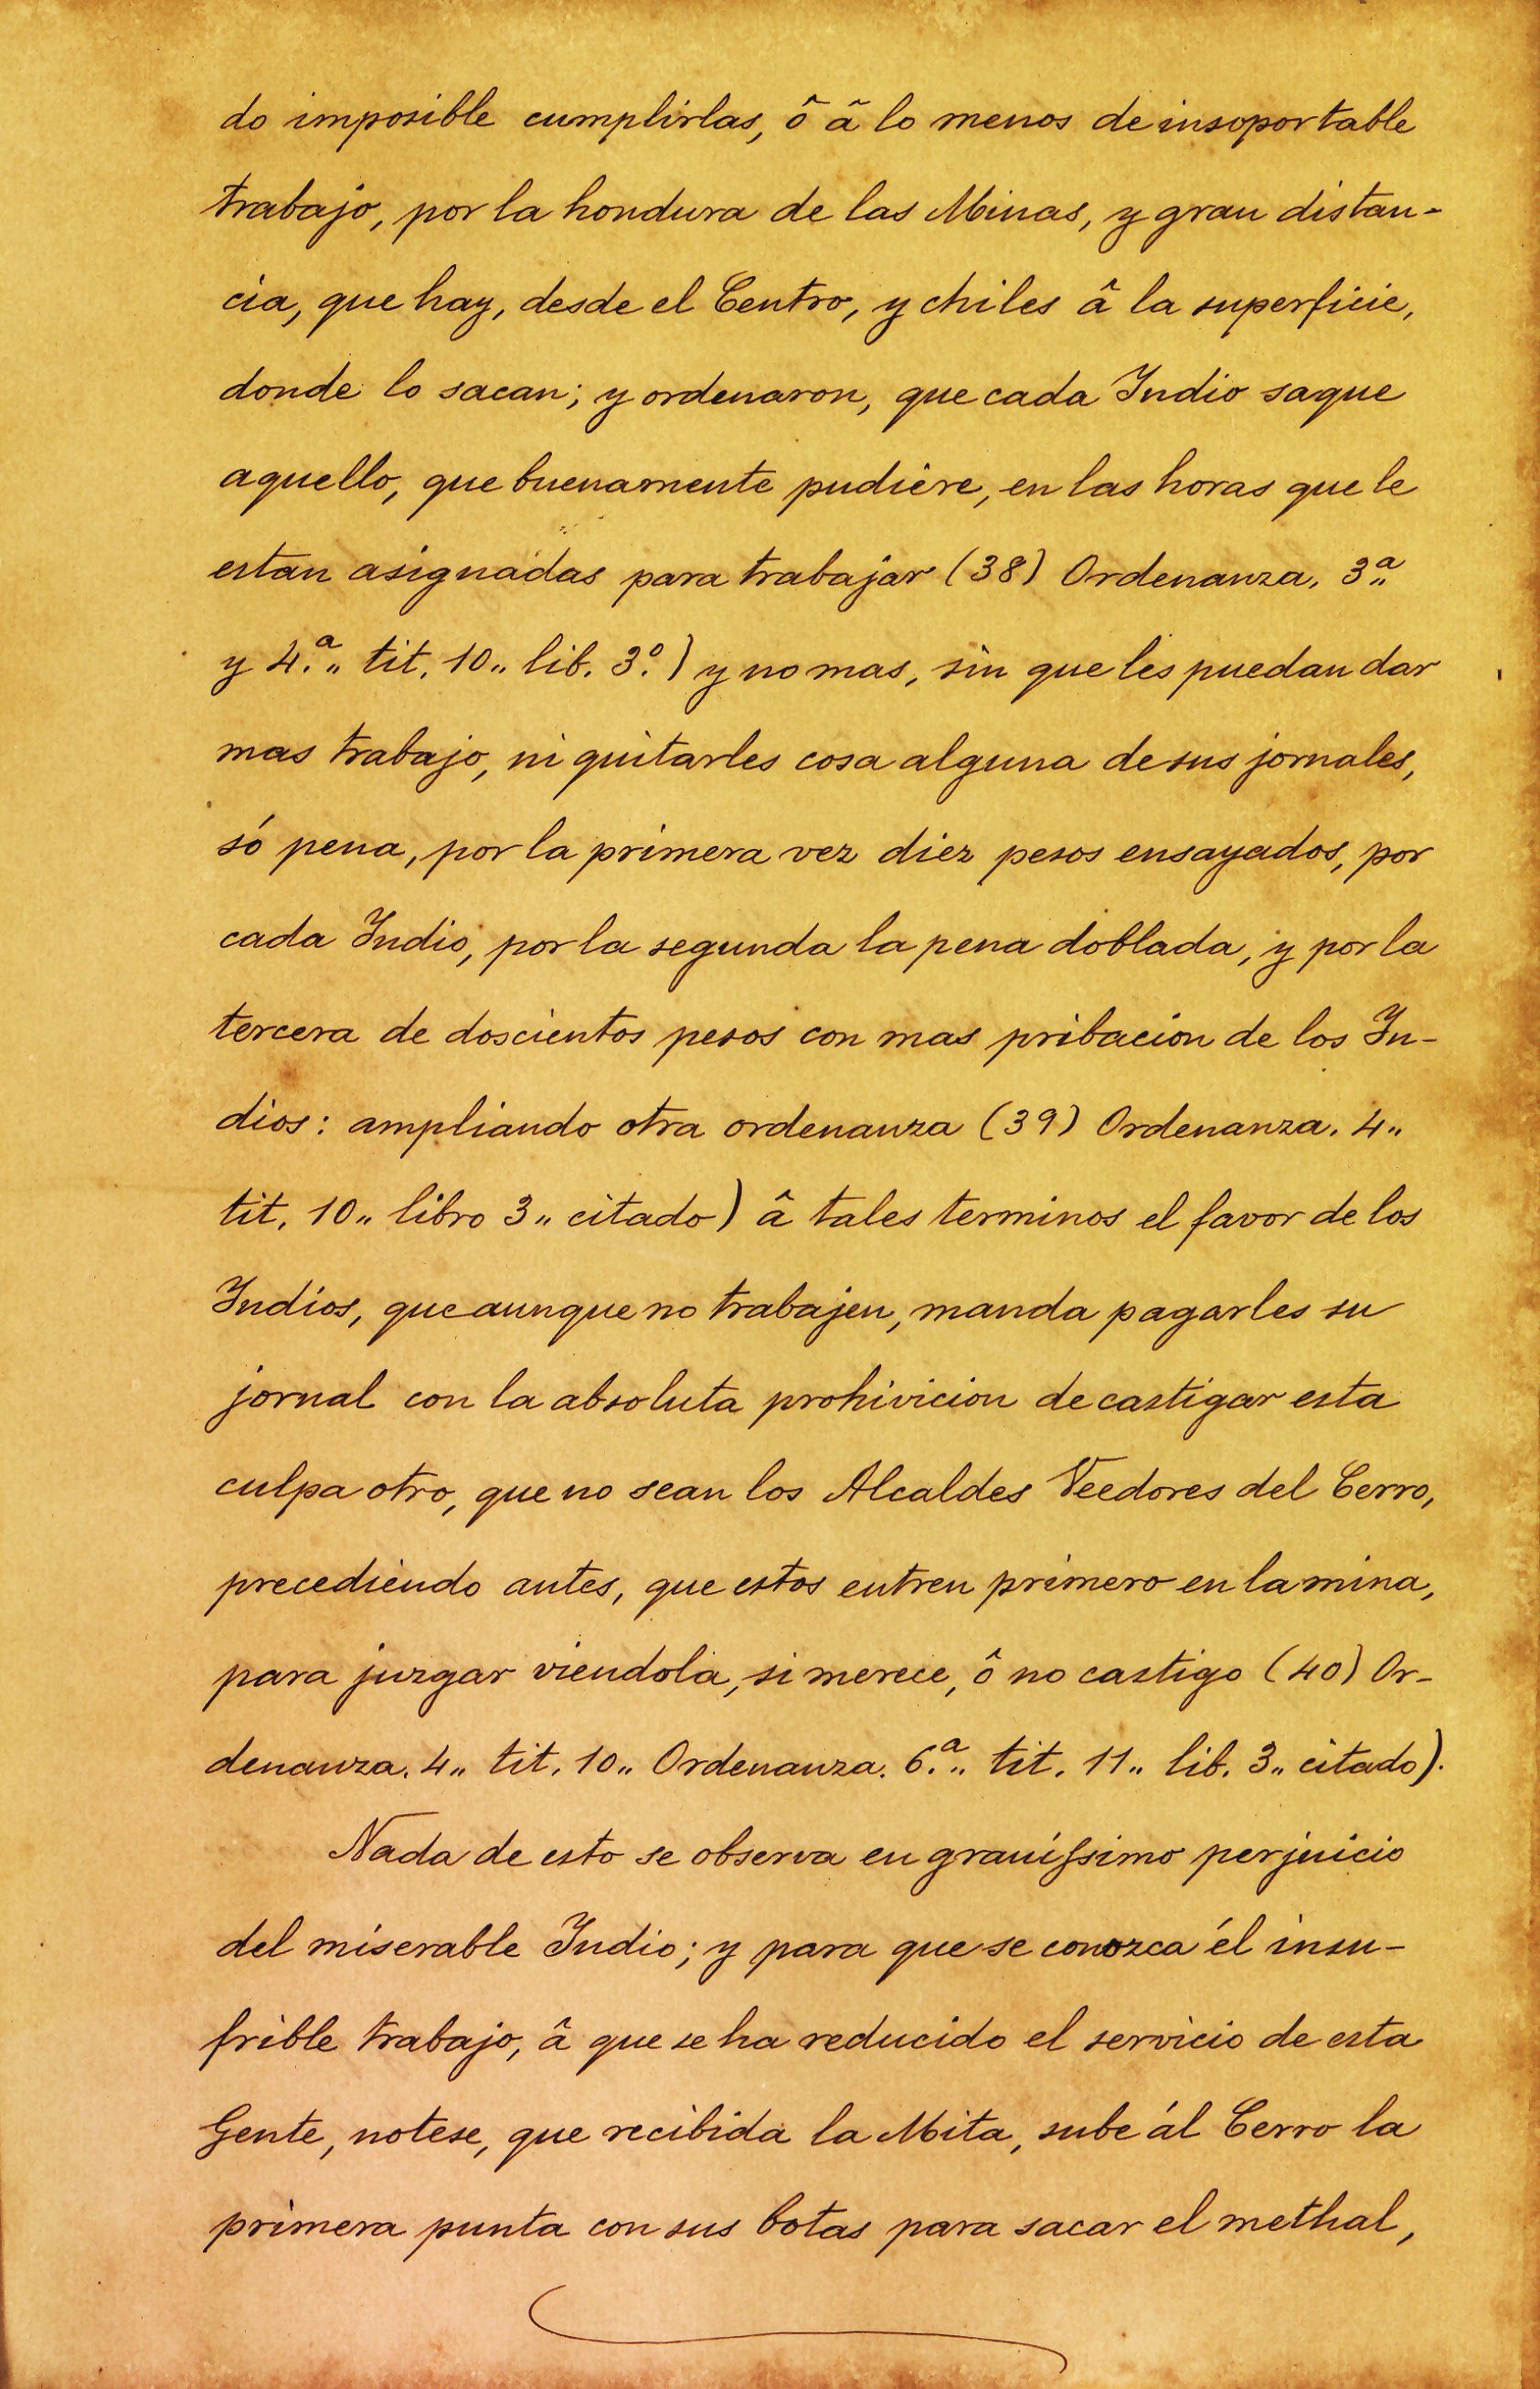 do imposible cumplirlas, ô â lo menos de insoportable
trabajo, por la hondura de las Minas, y gran distan-
cia, que hay, desde el Centro, y chiles â la superficie,
donde lo sacan; y ordenaron, que cada Indio saque
aquello, que buenamente pudiere, en las horas que le
estan asignadas para trabajar (38) Ordenanza. 3.ª„
y 4.ª„ tit. 10„ lib. 3º.) y no mas, sin que les puedan dar
mas trabajo, ni quitarles cosa alguna de sus jornales,
só pena, por la primera vez diez pesos ensayados, por
cada Indio, por la segunda la pena doblada, y por la
tercera de doscientos pesos con mas pribacion de los In-
dios: ampliando otra ordenanza (39) Ordenanza. 4„
tit. 10„ libro 3„ citado) â tales terminos el favor de los
Indios, que aunque no trabajen, manda pagarles su
jornal con la absoluta prohivicion de castigar esta
culpa otro, que no sean los Alcaldes Veedores del Cerro,
precediendo antes, que estos entren primero en la mina,
para juzgar viendola, si merece, ô no castigo (40) Or-
denanza. 4„ tit. 10„ Ordenanza. 6.ª„ tit. 11„ lib. 3„ citado).
Nada de esto se observa en grauissimo perjuicio
del miserable Indio; y para que se conozca él insu-
frible trabajo, â que se ha reducido el servicio de esta
Gente, notese, que recibida la Mita, sube ál Cerro la
primera punta con sus botas para sacar el methal,